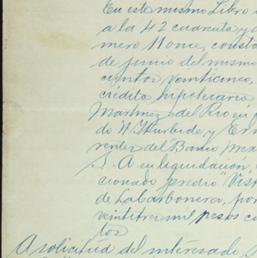 En este mismo Libro
a la 42 cuarenta y
mero Once, consta
de junio del mismo
cientos veinticinco,
crédito hipotecario
Martinez del Rio en
do W. Iturbide y
rentes del Banco
S. A en liquidación
cionado predio "Vis
de Labarbonera, por
veintitres mil pesos
tos
A solicitud del interesado